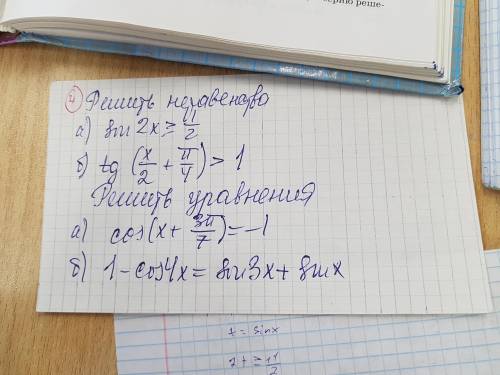 серию реше-
4 Решить неравенство
а) sin 2x ≥ π/2
б) tg (x/2 + π/4) > 1
Решить уравнения
а) cos(x + 3π/7) = -1
б) 1 - cos4x = sin3x + sinx
t = sinx